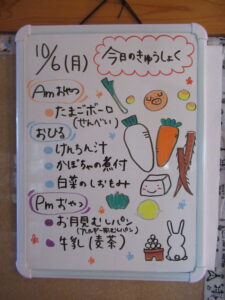 10/6(月)
今日のきゅうしょく
Amおやつ
たまごボーロ
(せんべい)
おひる
けんちん汁
かぼちゃの煮付
白菜のしおもみ
Pmおやつ
お月見むしパン
(アレルギー用むしパン)
牛乳(麦茶)